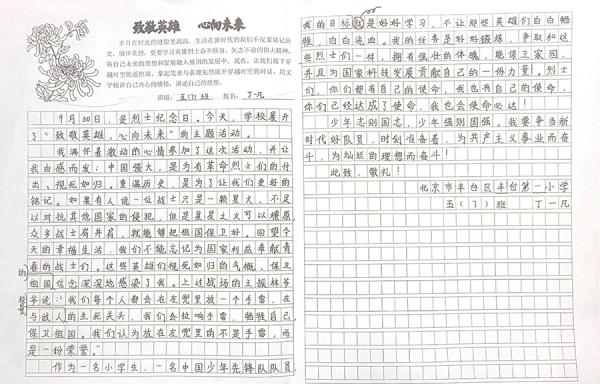 致敬英雄 心向未来
岁月在时光的缝隙里流淌，生活在新时代的我们不仅要铭记历
史、缅怀英烈，更要学习英雄烈士奋不顾身、矢志不渝的伟大精神，
将自己未来的理想和发展融入祖国的发展中。现在，让我们接下穿
越时空的遥控器，拿起笔来与英雄先烈展开穿越时空的对话，用文
字倾诉自己内心的感悟，讲述自己的理想。
班级：五(7)班 姓名：丁一凡
9月30日，是烈士纪念日。今天，学校展开
了“致敬英雄，心向未来”的主题活动。
我满怀着激动的心情参加了这次活动，并让
我由感而发：中国强大，是为有革命烈士们的付
出、视死如归。重温历史，是为了让我们更好的
铭记。如果有人说一位战士只是一颗星火，不足
以对抗其他国家的侵犯，但是星星之火可以燎原，
众多战士肩并肩，就能够把祖国保卫好。回望今
天的幸福生活，我们不能忘记为国家利益奉献青
春的战士们。这些英雄们视死如归的气概、保卫
祖国的信念深深地感染了我。上过战场的王振林爷
爷说：“我们每个人都会在左兜里放一个手雷，在
与敌人的生死关头，我们会拉响手雷，牺牲自己，
保卫祖国。我们认为放在左兜里的不是手雷，而
是一份荣誉。”
作为一名小学生，一名中国少年先锋队队员，
我的目标就是好好学习，不让那些英雄们白白牺
牲，白白流血。我的任务是好好锻炼，争取和这
些烈士们一样，拥有强壮的体魄，能保卫家园，
并且为国家科技发展贡献自己的一份力量。烈士
们，你们都有自己的使命，我也有自己的使命，
你们已经达成了使命，我也会使命必达！
少年志则国志，少年强则国强。我要争当新
时代好队员，时刻准备着，为共产主义事业而奋
斗，为灿烂的理想而奋斗！
此致，敬礼！
北京市丰台区丰台第一小学
五（7）班 丁一凡